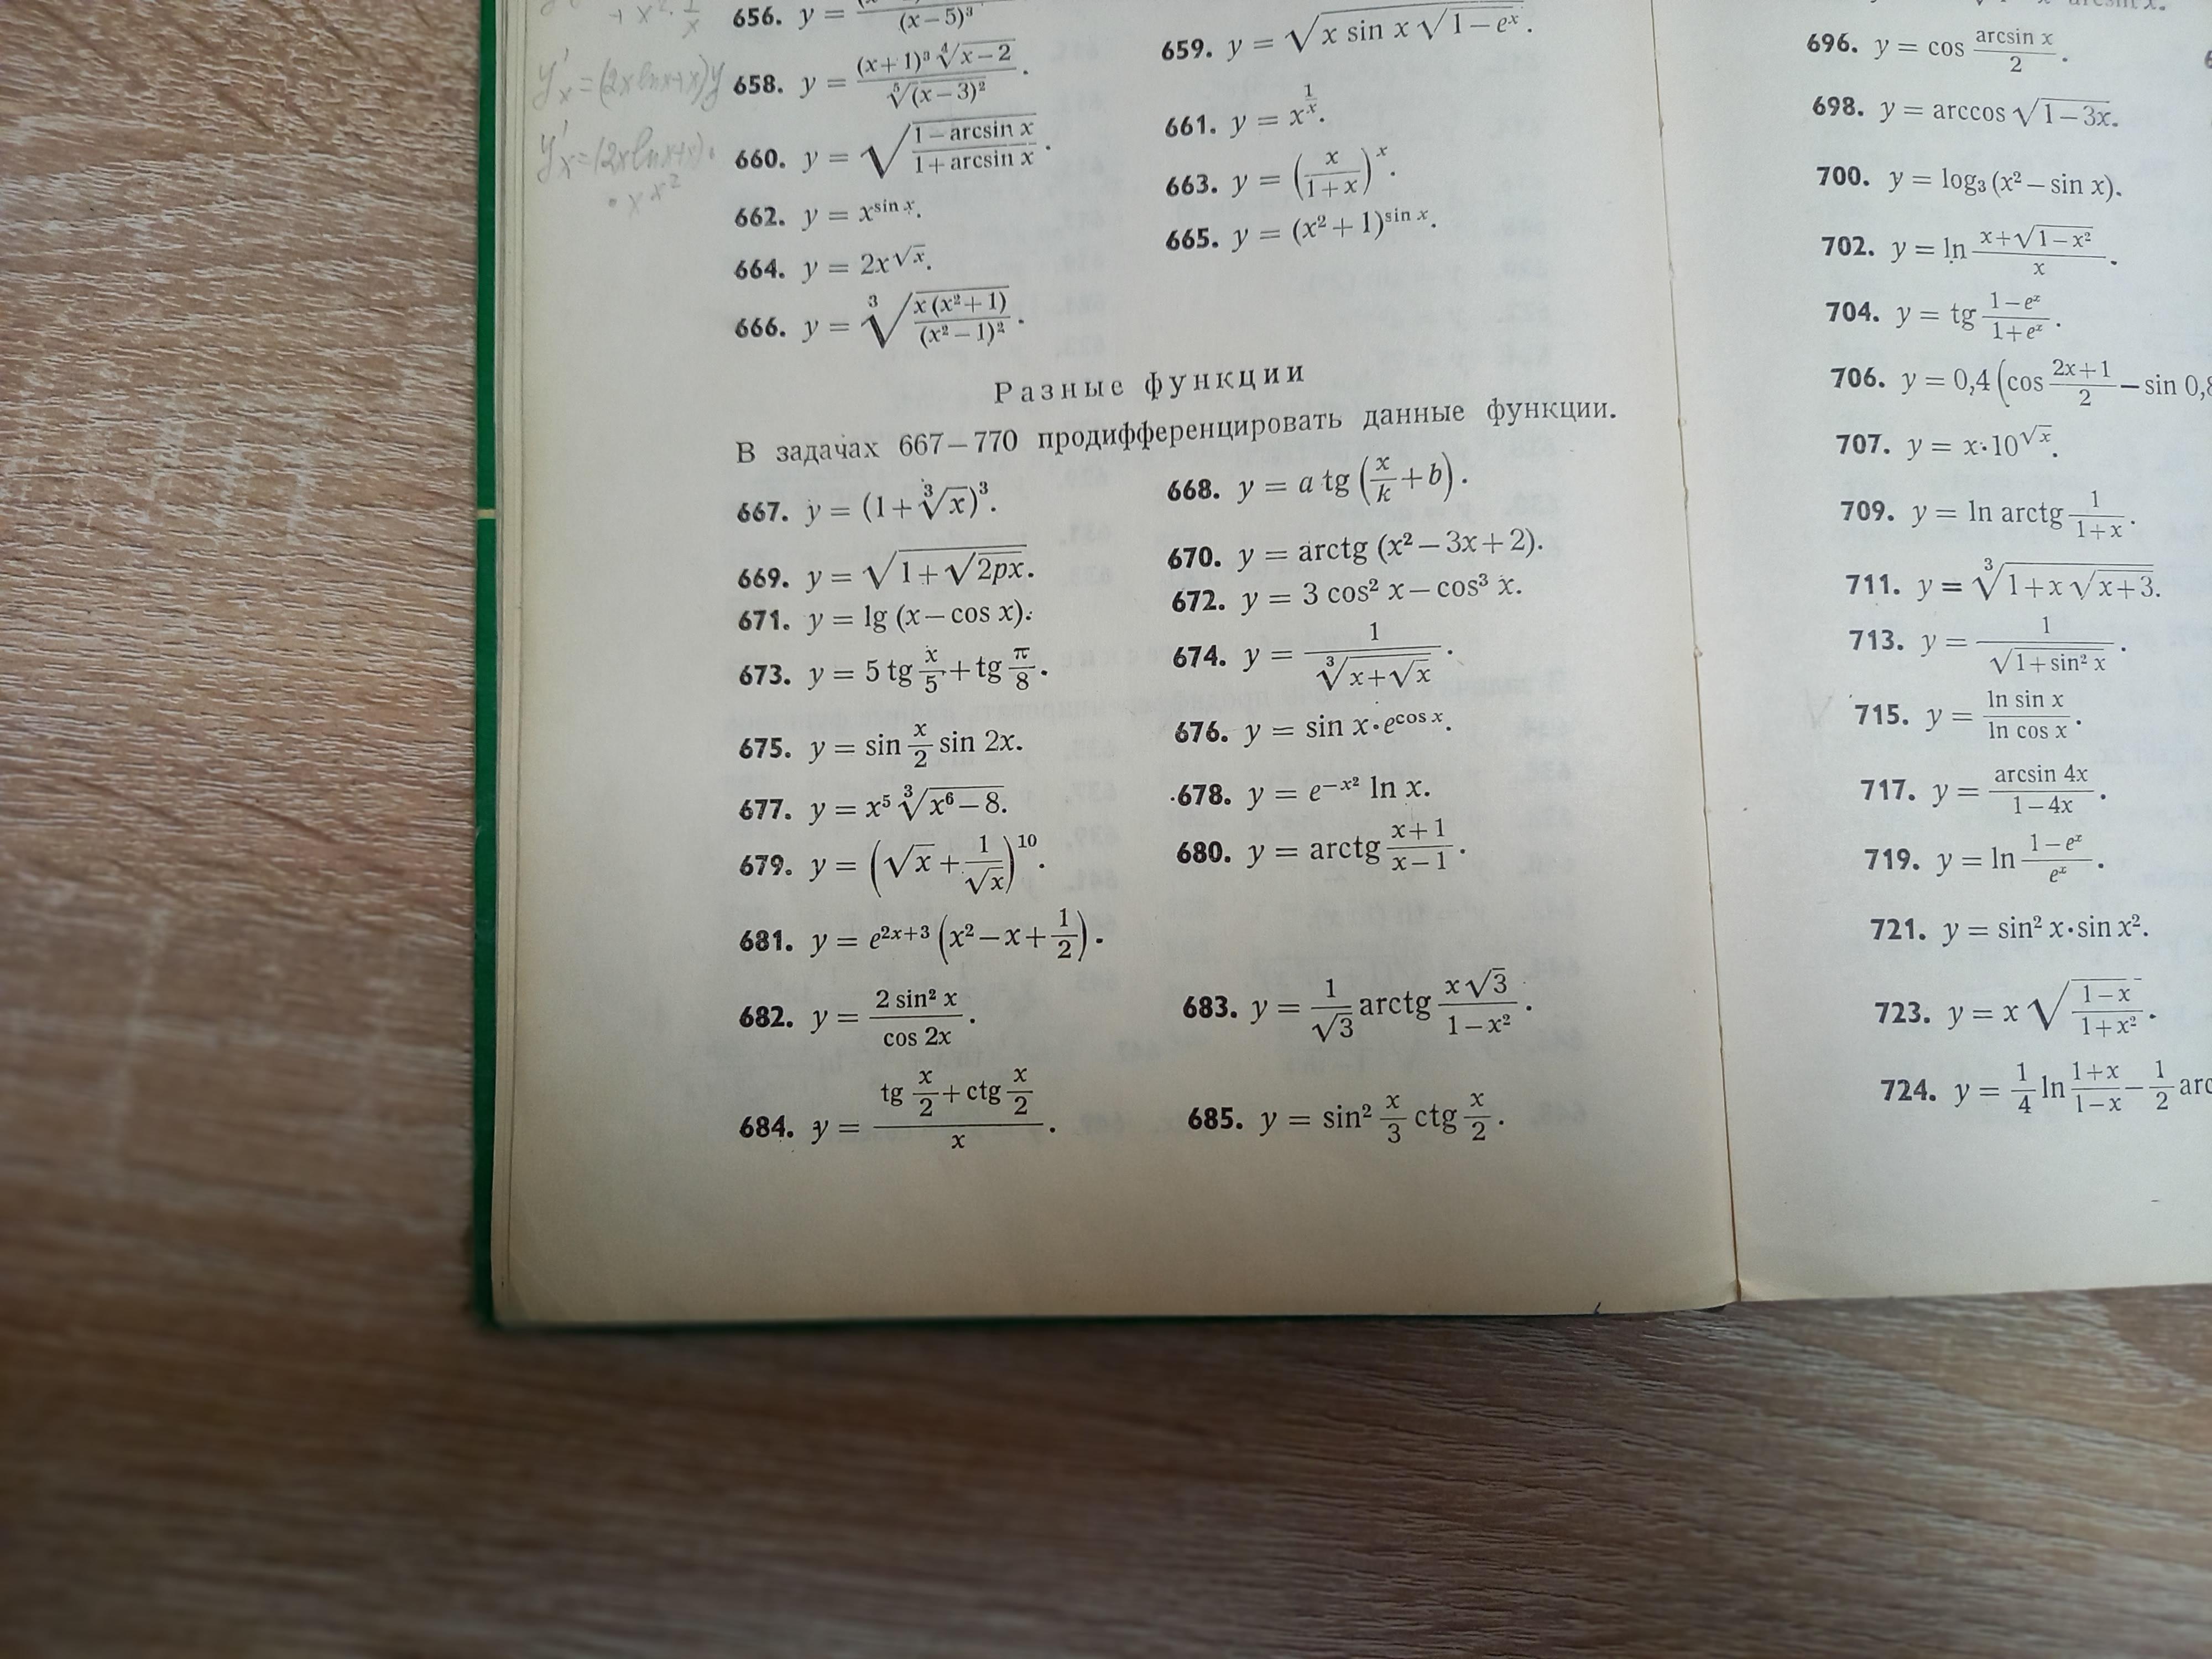 y'x = (2x ln x + x) y
y'x = (2x ln x + x) ·
· x^x²
656. y = / (x − 5)³
658. y = (x + 1)³ ∜(x − 2) / ⁵√(x − 3)² .
659. y = √(x sin x √(1 − eˣ)).
660. y = √((1 − arcsin x) / (1 + arcsin x)) .
661. y = x^(1/x).
662. y = x^(sin x).
663. y = (x / (1 + x))^x.
664. y = 2x^(√x).
665. y = (x² + 1)^(sin x).
666. y = ∛(x (x² + 1) / (x² − 1)²) .
Разные функции
В задачах 667—770 продифференцировать данные функции.
667. y = (1 + ∛x)³.
668. y = a tg (x/k + b).
669. y = √(1 + √(2px)).
670. y = arctg (x² − 3x + 2).
671. y = lg (x − cos x).
672. y = 3 cos² x − cos³ x.
673. y = 5 tg x/5 + tg π/8 .
674. y = 1 / ∛(x + √x) .
675. y = sin x/2 sin 2x.
676. y = sin x · e^(cos x).
677. y = x⁵ ∛(x⁶ − 8).
678. y = e^(−x²) ln x.
679. y = (√x + 1/√x)¹⁰.
680. y = arctg (x + 1)/(x − 1) .
681. y = e^(2x+3) (x² − x + 1/2) .
682. y = 2 sin² x / cos 2x .
683. y = 1/√3 arctg x√3 / (1 − x²) .
684. y = (tg x/2 + ctg x/2) / x .
685. y = sin² x/3 ctg x/2 .
arcsin x.
696. y = cos arcsin x / 2 .
698. y = arccos √(1 − 3x).
700. y = log₃ (x² − sin x).
702. y = ln (x + √(1 − x²)) / x .
704. y = tg (1 − eˣ)/(1 + eˣ) .
706. y = 0,4 (cos (2x + 1)/2 − sin 0,8
707. y = x · 10^(√x).
709. y = ln arctg 1/(1 + x) .
711. y = ∛(1 + x √(x + 3)).
713. y = 1 / √(1 + sin² x) .
715. y = ln sin x / ln cos x .
717. y = arcsin 4x / (1 − 4x) .
719. y = ln (1 − eˣ)/eˣ .
721. y = sin² x · sin x².
723. y = x √((1 − x)/(1 + x²)) .
724. y = 1/4 ln (1 + x)/(1 − x) − 1/2 arc